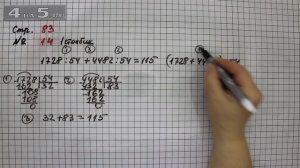 4 or 5
Стр. 83
№ 14 1 столбик
① ③ ②
1728 : 54 + 4482 : 54 = 115 (1728 + 44
① 1728 | 54
162 32
108
108
0
② 4482 | 54
432 83
162
162
0
③ 32 + 83 = 115